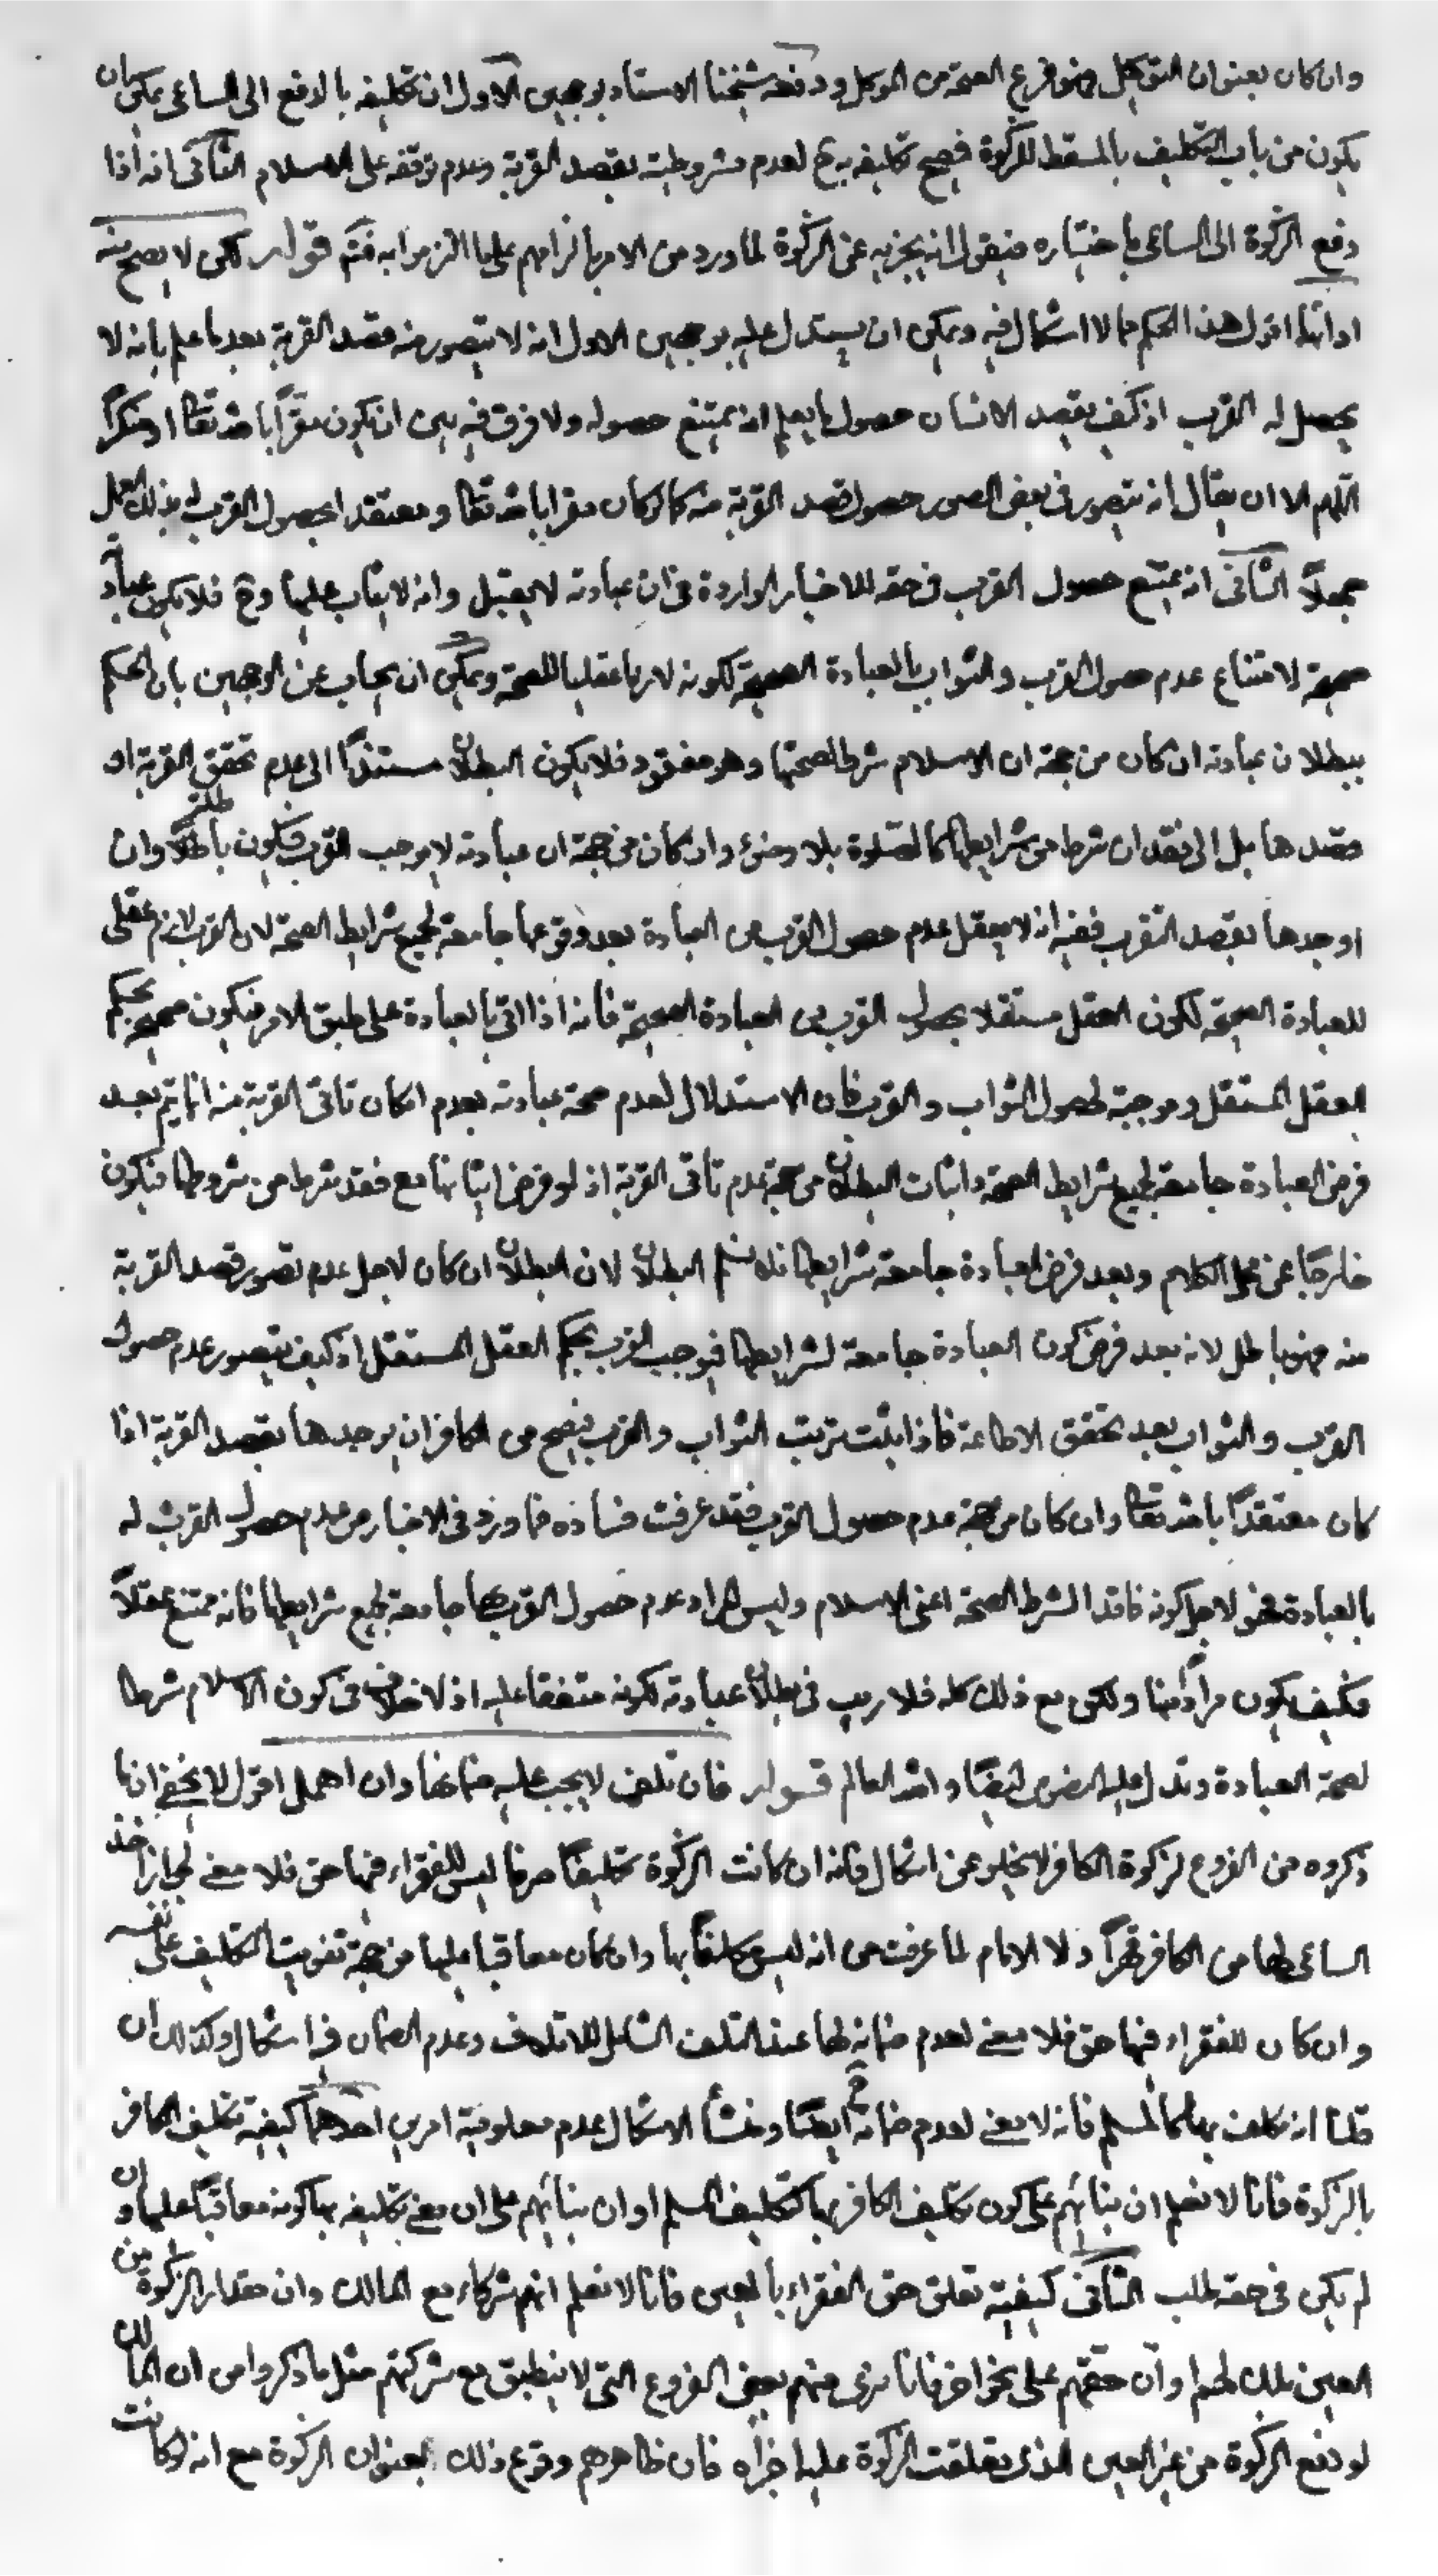 وان كان بعنوان التوكيل فهو فرع الصحة من الموكل ودفعه شيخنا الاستاد بوجهين الاول ان تكليفه بالدفع الى الساعى يمكن ان
يكون من باب التكليف بالمسقط للزكوة فيصح تكليفه به ح لعدم مشروطيته بقصد القربة وعدم توقفه على الاسلام الثانى انه اذا
دفع الزكوة الى الساعى باختياره فيقول انه يجزيه عن الزكوة لما ورد من الامر بالزامهم على ما الزموا به فتم قوله لكن لا يصح منه
ادائها اقول هذا الحكم مما لا اشكال فيه ويمكن ان يستدل عليه بوجهين الاول انه لا يتصور منه قصد القربة بعد ما علم بانه لا
يحصل له القرب اذ كيف يقصد الانسان حصول ما يعلم انه يمتنع حصوله ولا فرق فيه بين ان يكون مقراً بالله تعالى او منكراً
اللهم الا ان يقال انه يتصور فى بعض الصور حصول قصد القربة منه كما لو كان مقرا بالله تعالى ومعتقدا بحصول القرب له بذلك العمل
جهلاً الثانى انه يمتنع حصول القرب فى حقه للاخبار الواردة فى ان عبادته لا يقبل وانه لا يثاب عليها وح فلا يكون عباد
صحيحة لامتناع عدم حصول القرب والثواب بالعبادة الصحيحة لكونه لازما عقليا للصحة ويمكن ان يجاب عن الوجهين بان الحكم
ببطلان عبادته ان كان من جهة ان الاسلام شرط لصحتها وهو مفقود فلا يكون البطلان مستنداً الى عدم تحقق القربة او
قصدها بل الى فقدان شرط من شرايطها كالصلوة بلا وضوء وان كان من جهة ان عبادته لا يوجب القرب فيكون باطلة وان
اوجدها بقصد التقرب ففيه انه لا يعقل عدم حصول القرب من العبادة بعد وقوعها جامعة لجميع شرايط الصحة لان القرب لازم عقلى
للعبادة الصحيحة لكون العقل مستقلا بحصول القرب من العبادة الصحيحة فانه اذا اتى بالعبادة على طبق الامر فيكون صحيحة بحكم
العقل المستقل وموجبة لحصول الثواب والقرب فان الاستدلال لعدم صحة عبادته بعدم امكان تاتى القربة منه انما يتم بعد
فرض العبادة جامعة لجميع شرايط الصحة واثبات البطلان من جهة عدم تاتى القربة اذ لو فرض اتيانها مع فقد شرط من شروطها فيكون
خارجاً عن محل الكلام وبعد فرض العبادة جامعة شرايطها فلا نسلم البطلان لان البطلان ان كان لاجل عدم تصور قصد القربة
منه فهو باطل لانه بعد فرض كون العبادة جامعة لشرايطها فيوجب القرب بحكم العقل المستقل اذ كيف يتصور عدم حصول
القرب والثواب بعد تحقق الاطاعة فاذا يثبت ترتب الثواب والقرب فيصح من الكافر ان يوجدها بقصد القربة اذا
كان معتقداً بالله تعالى وان كان من جهة عدم حصول القرب فقد عرفت فساده فما ورد فى الاخبار من عدم حصول القرب له
بالعبادة فهو لاجل كونه فاقدا لشرط الصحة اعنى الاسلام وليس المراد عدم حصول القرب بها جامعة لجميع شرايطها فانه ممتنع عقلاً
فكيف يكون مراداً منها ولكن مع ذلك كله فلا ريب فى بطلان عبادته لكونه متفقا عليه اذ لا خلاف فى كون الاسلام شرطا
لصحة العبادة وتدل عليه النصوص ايضًا والله العالم قوله فان تلفت لا يجب عليه ضمانها وان اهمل اقول لا يخفى ان ما
ذكروه من الفروع لزكوة الكافر لا يخلو عن اشكال فانه ان كانت الزكوة تكليفًا صرفا ليس للفقراء فيها حق فلا معنى لجواز اخذ
الساعى لها من الكافر قهراً ولا الامام لما عرفت من انه ليس مكلفاً بها وان كان معاقبا عليها من جهة تفويت التكليف على نفسه
وان كان للفقراء فيها حق فلا معنى لعدم ضمانه لها عند التلف الشامل للاتلاف وعدم الضمان فيه اشكال وكذلك ان
قلنا انه مكلف بها كالمسلم فانه لا معنى لعدم ضمانه ح ايضًا ومنشأ الاشكال عدم معلومية امرين احدهما كيفية تكليف الكافر
بالزكوة فانا لا نعلم ان بنائهم على كون تكليف الكافر بها كتكليف المسلم او ان بنائهم على ان معنى تكليفه بها كونه معاقباً عليها وان
لم يكن فى حقه طلب الثانى كيفية تعلق حق الفقراء بالعين فانا لا نعلم انهم شركاء مع المالك وان مقدار الزكوة من
العين ملك لهم او ان حقهم على نحو اخر فانا نرى منهم بعض الفروع التى لا ينطبق مع شركتهم مثل ما ذكروا من ان المالك
لو دفع الزكوة من غير العين الذى تعلقت الزكوة عليها اجزأه فان ظاهرهم وقوع ذلك بعنوان الزكوة مع انه لو كانت